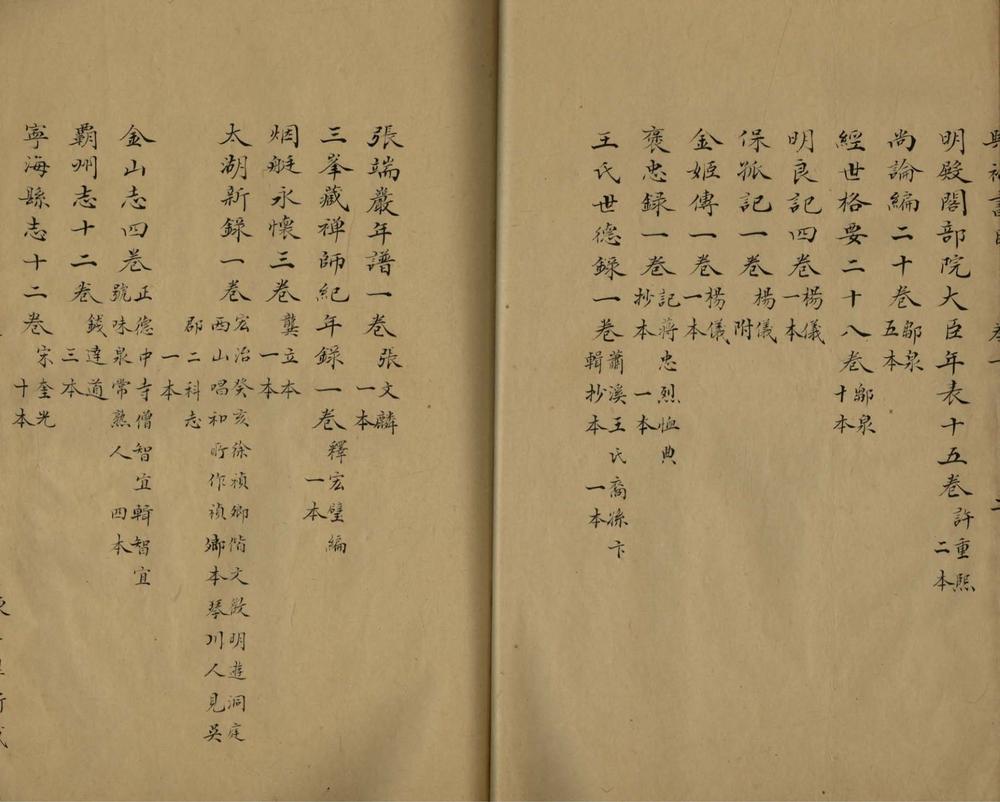 明殿閣部院大臣年表十五卷許重熙二本
尚論編二十卷鄔泉五本
經世格要二十八卷鄔泉十本
明良記四卷楊儀一本
保孤記一卷楊儀附
金姬傳一卷楊儀一本
褒忠録一卷記蔣忠烈恤典抄本一本
王氏世德録一卷蕭溪王氏裔孫卞輯抄本一本
張端巖年譜一卷張文麟一本
三峯藏禅師紀年録一卷釋宏璧編一本
烟艇永懷三卷龔立本一本
太湖新録一卷宏治癸亥徐禎卿偕文徴明遊洞庭西山唱和所作禎卿本琴川人見吳
郡二科志一本
金山志四卷正德中寺僧智宜輯智宜號味泉常熟人四本
覇州志十二卷錢達道三本
寧海縣志十二卷宋奎光十本